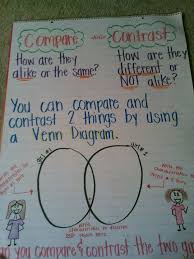 Compare and Contrast
How are they alike or the same?
How are they different or NOT alike?
You can compare and
contrast 2 things by using
a Venn Diagram.
an you compare & contrast the two